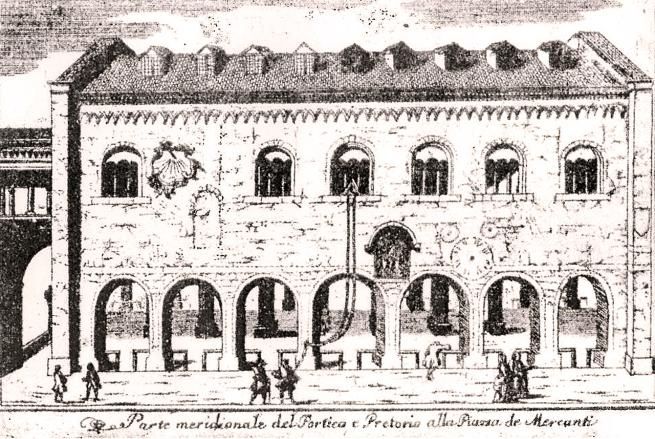 Parte meridionale del Portico, e Pretorio alla Piazza de Mercanti